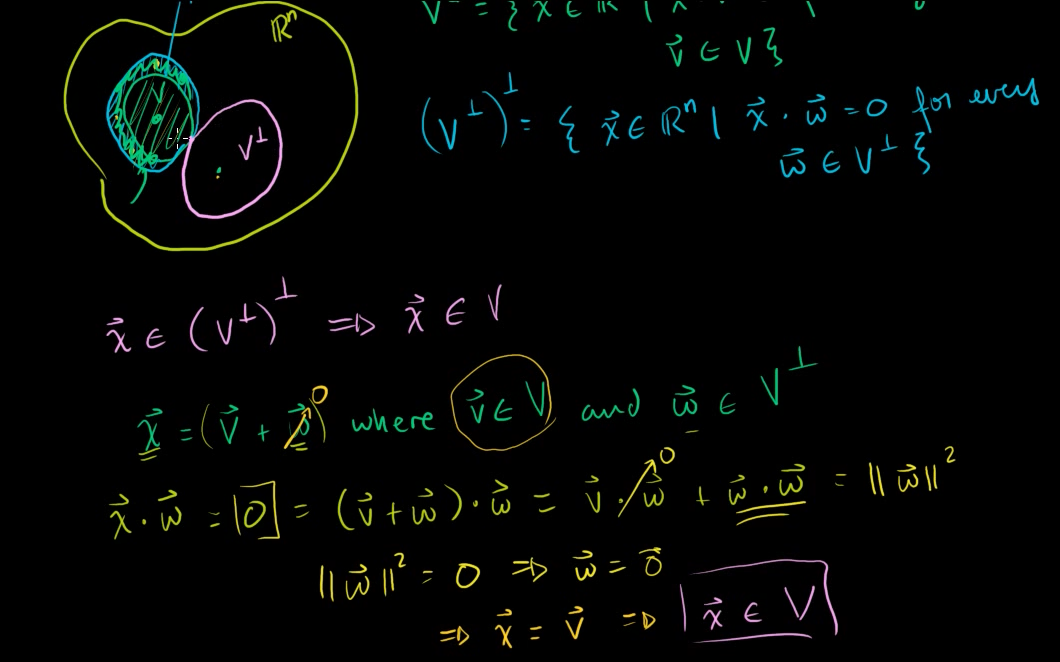 V = { x⃗ ∈ ℝ | x
v⃗ ∈ V }
ℝⁿ
V
V⊥
(V⊥)⊥ = { x⃗ ∈ ℝⁿ | x⃗ · w⃗ = 0 for every
w⃗ ∈ V⊥ }
x⃗ ∈ (V⊥)⊥ ⇒ x⃗ ∈ V
x⃗ = (v⃗ + w⃗) 0 where v⃗ ∈ V and w⃗ ∈ V⊥
x⃗ · w⃗ = 0 = (v⃗ + w⃗) · w⃗ = v⃗ · w⃗ 0 + w⃗ · w⃗ = ‖w⃗‖²
‖w⃗‖² = 0 ⇒ w⃗ = 0⃗
⇒ x⃗ = v⃗ ⇒ x⃗ ∈ V